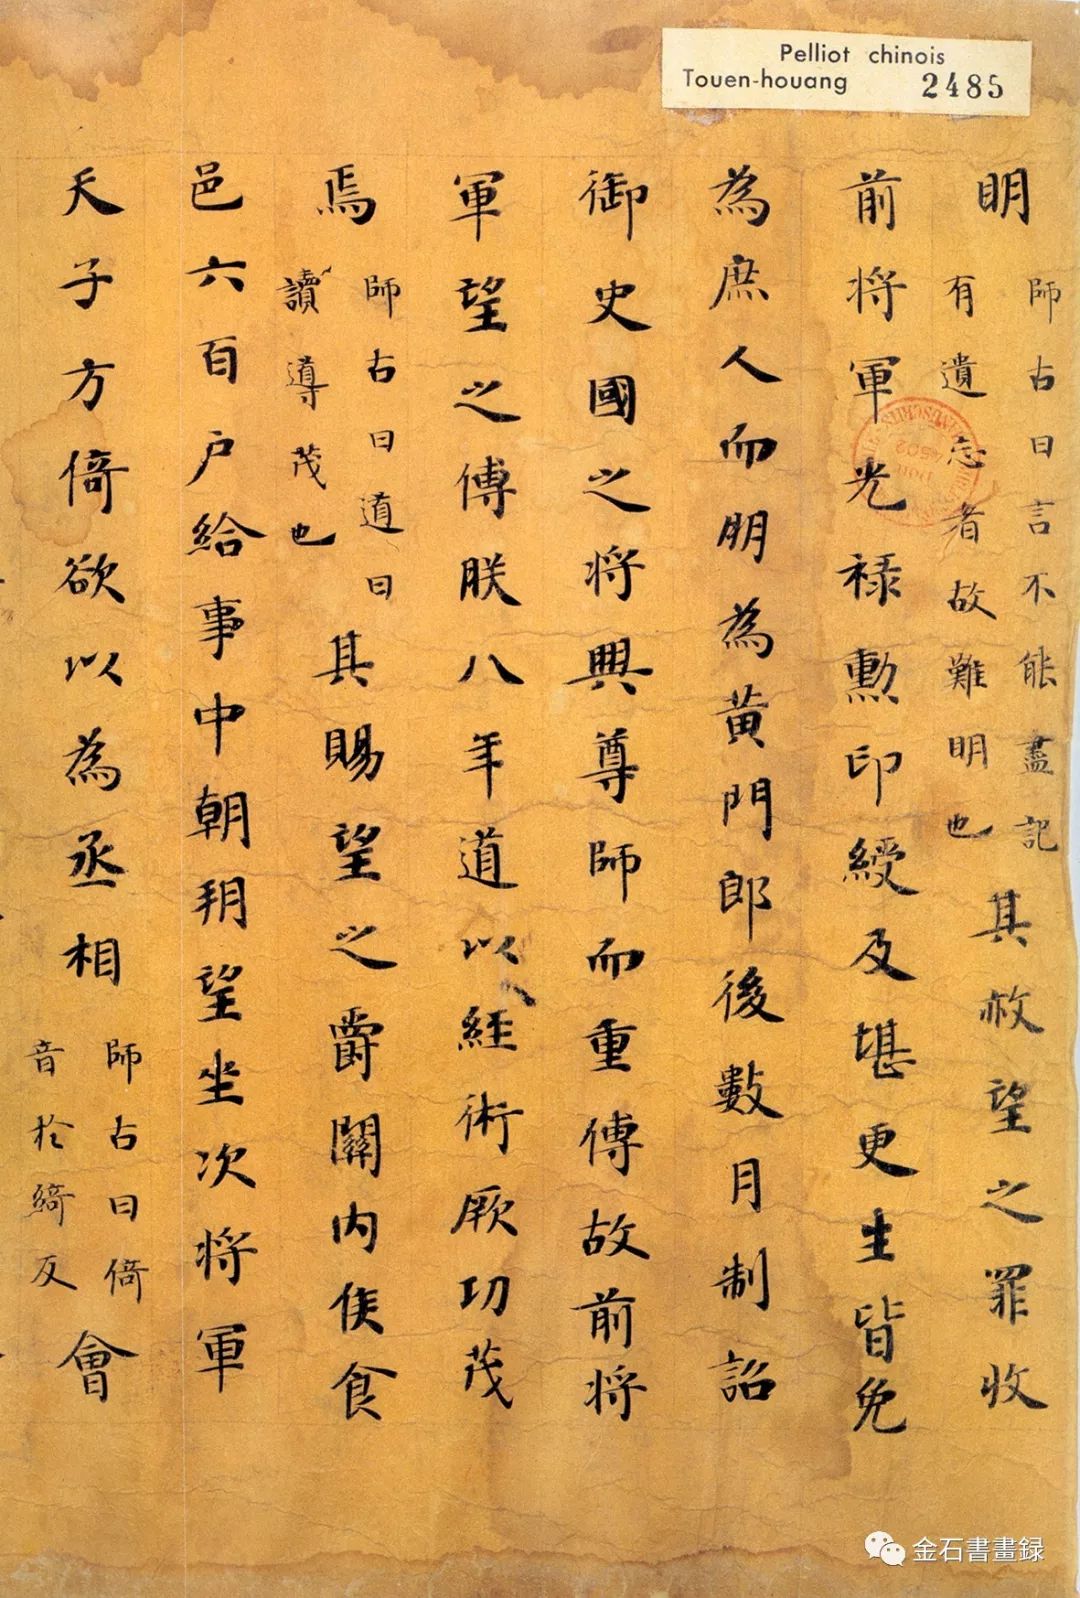 Pelliot chinois
Touen-houang 2485
明師古曰言不能盡記有遺忘者故難明也其赦望之罪收
前将軍光禄勲印綬及堪更生皆免
為庶人而朋為黄門郎後數月制詔
御史國之将興尊師而重傅故前将
軍望之傅朕八年道以經術厥功茂
焉師古曰道曰讀導茂也其賜望之爵關内侯食
邑六百户給事中朝朔望坐次将軍
天子方倚欲以為丞相師古曰倚音於綺反會
金石書畫録